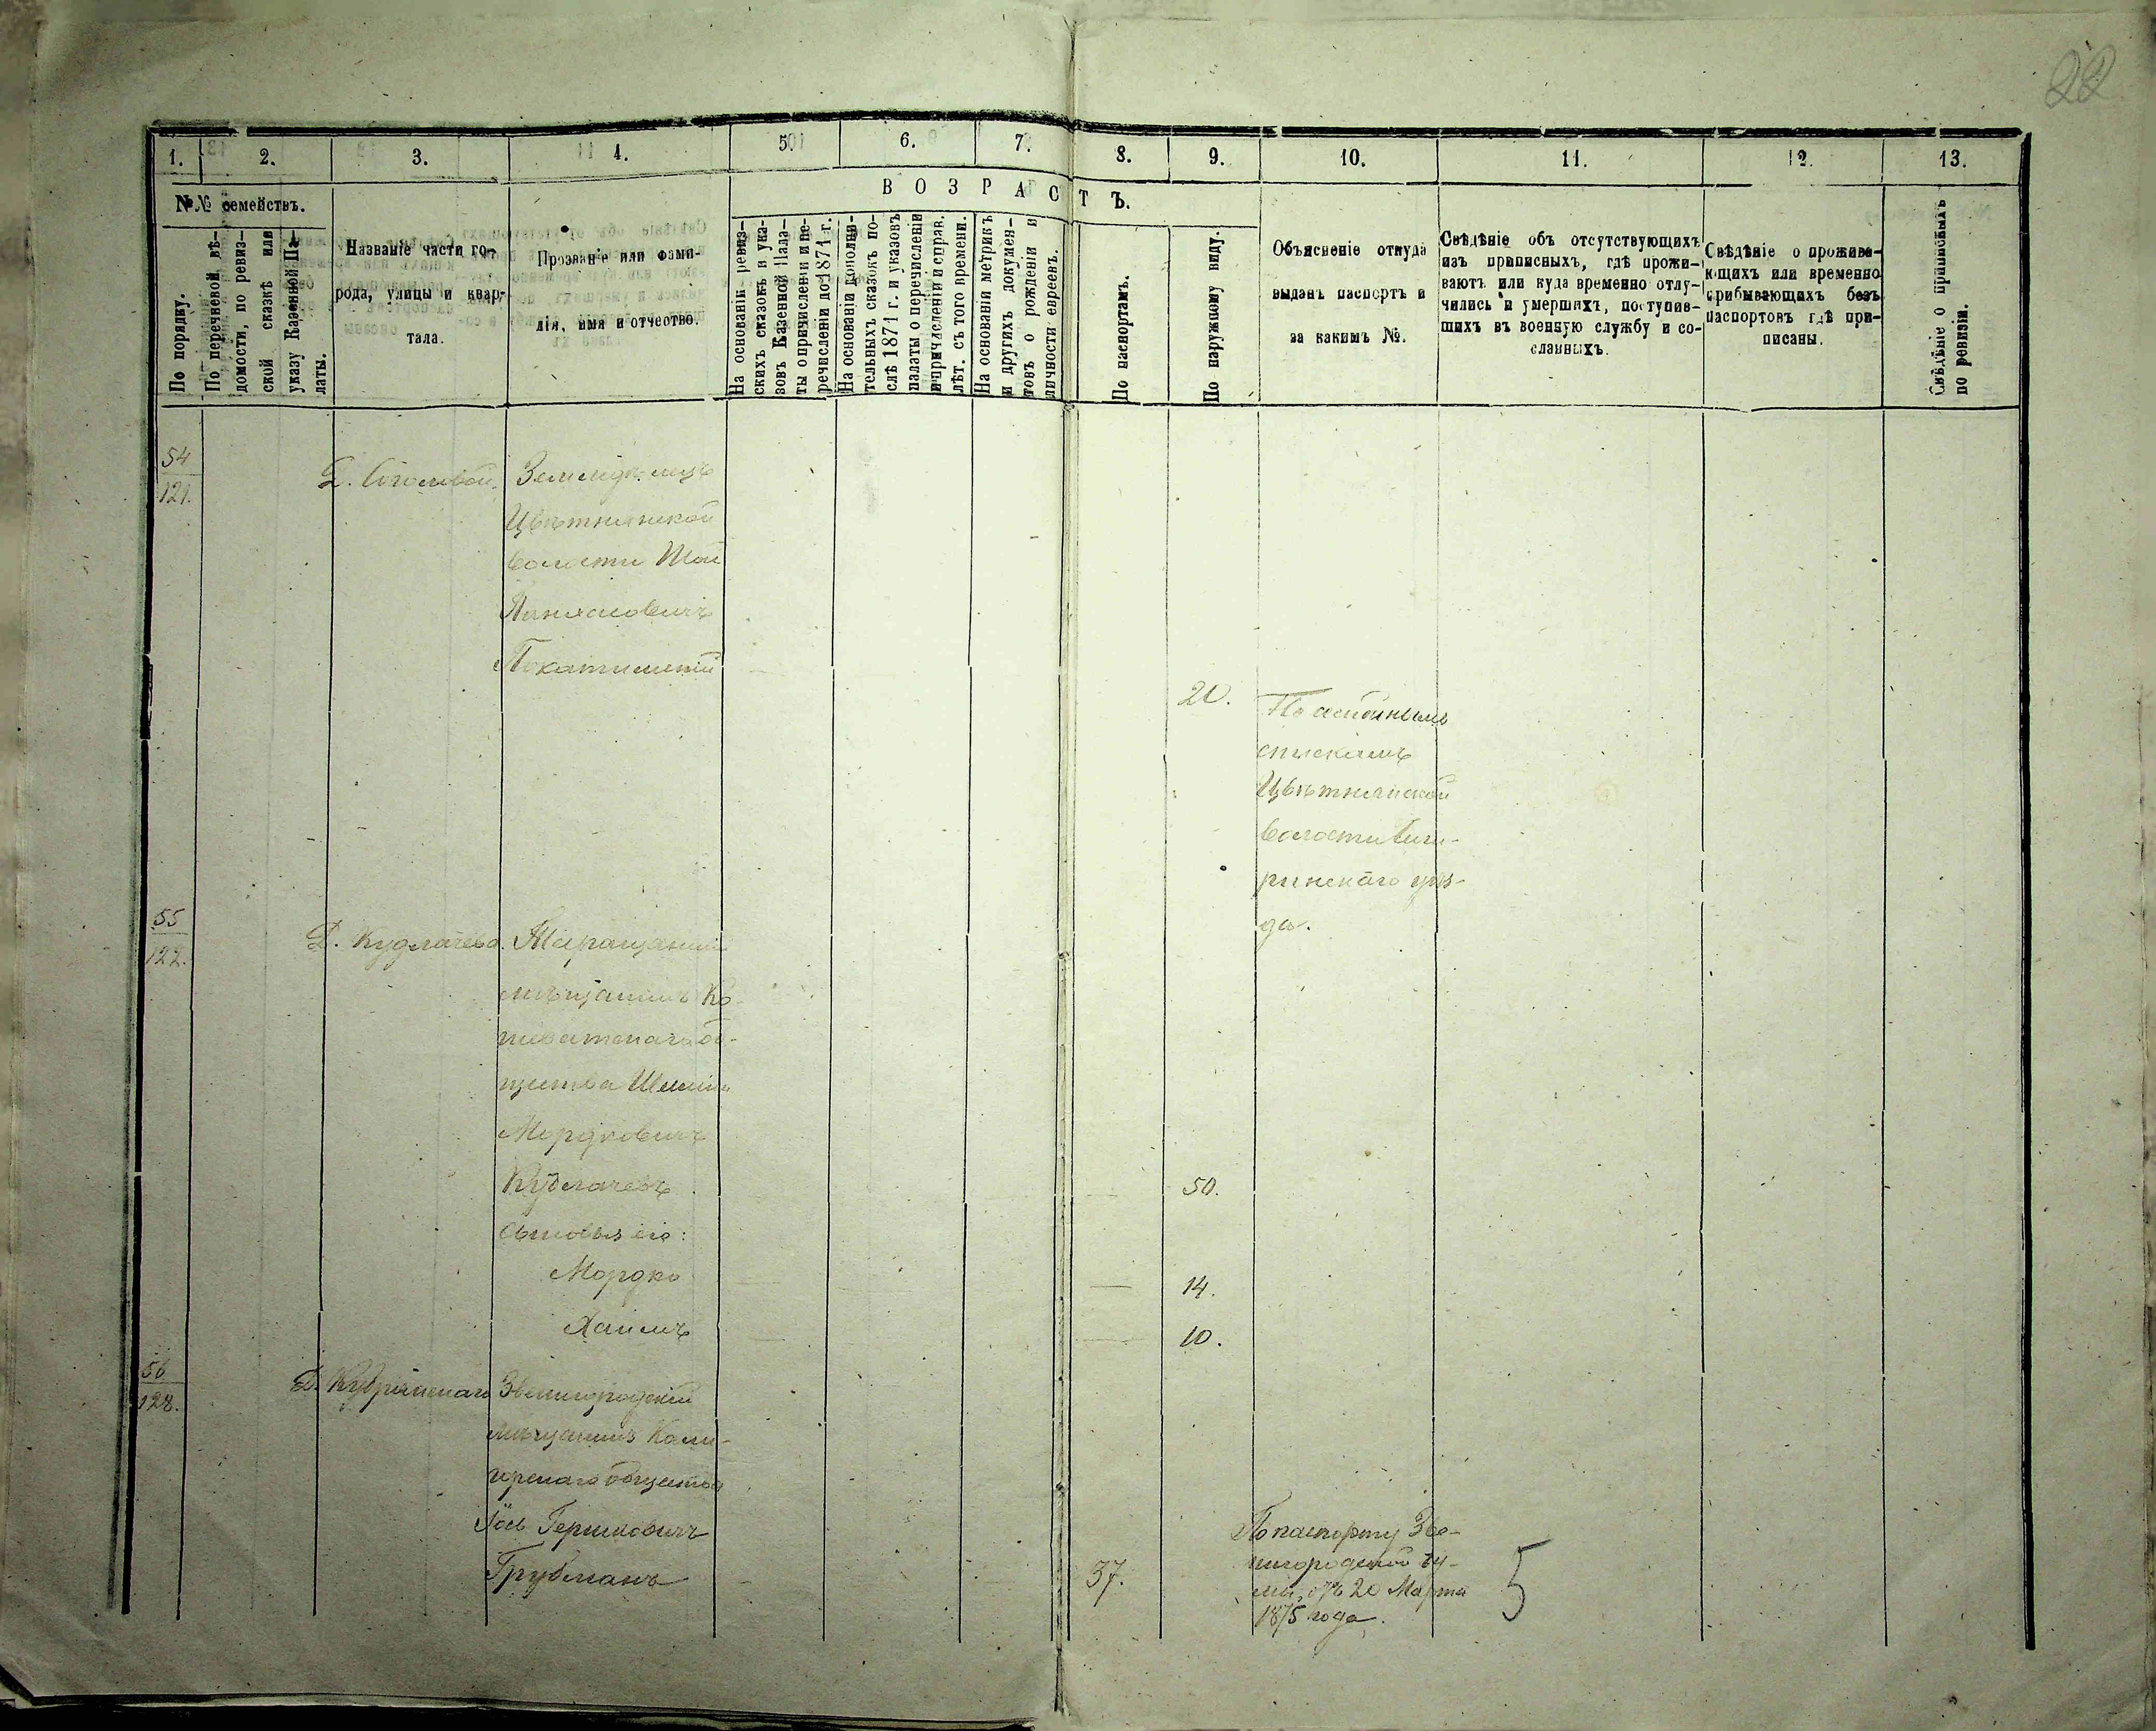 22
1. 2. 3. 4. 5. 6. 7. 8. 9. 10. 11. 12. 13.
№№ семействъ.
В О З Р А С Т Ъ.
По порядку.
По перечневой вѣ-
домости, по ревиз-
ской сказкѣ или
указу Казенной Па-
латы.
Названіе части го-
рода, улицы и квар-
тала.
Прозваніе или фами-
лія, имя и отчество.
На основаніи ревиз-
скихъ сказокъ и ука-
зовъ Казенной Пала-
ты о причисленіи и пе-
речисленіи до 1871 г.
На основаніи дополни-
тельныхъ сказокъ по-
слѣ 1871 г. и указовъ
палаты о перечисленіи
и причисленіи и справ.
лѣт. съ того времени.
На основаніи метрикъ
и другихъ докумен-
товъ о рожденіи и
личности евреевъ.
По паспортамъ.
По наружному виду.
Объясненіе откуда
выданъ паспортъ и
за какимъ №.
Свѣдѣніе объ отсутствующихъ
изъ приписныхъ, гдѣ прожи-
ваютъ или куда временно отлу-
чились и умершихъ, поступив-
шихъ въ военную службу и со-
сланныхъ.
Свѣдѣніе о прожива-
ющихъ или временно
прибывающихъ безъ
паспортовъ гдѣ при-
писаны.
Свѣдѣніе о приписныхъ
по ревизіи.
54
121.
Земледѣлецъ
Цвѣтнянской
волости
20.
спискамъ
Цвѣтнянской
волости Чиги-
ринскаго уѣз-
да.
55
122.
Д. Кудлачева.
Таращанскій
мѣщанинъ Ко-
шеватскаго об-
щества
Мордковичъ
Кудлачевъ
50.
сыновья его:
Мордко
14.
Хаимъ
10.
56
128.
Звенигородскій
мѣщанинъ Кали-
горскаго общества
Іось Гершковичъ
Грубманъ
37.
По паспорту Зве-
нигородской Ду-
мы, отъ 20 Марта
1875 года.
5